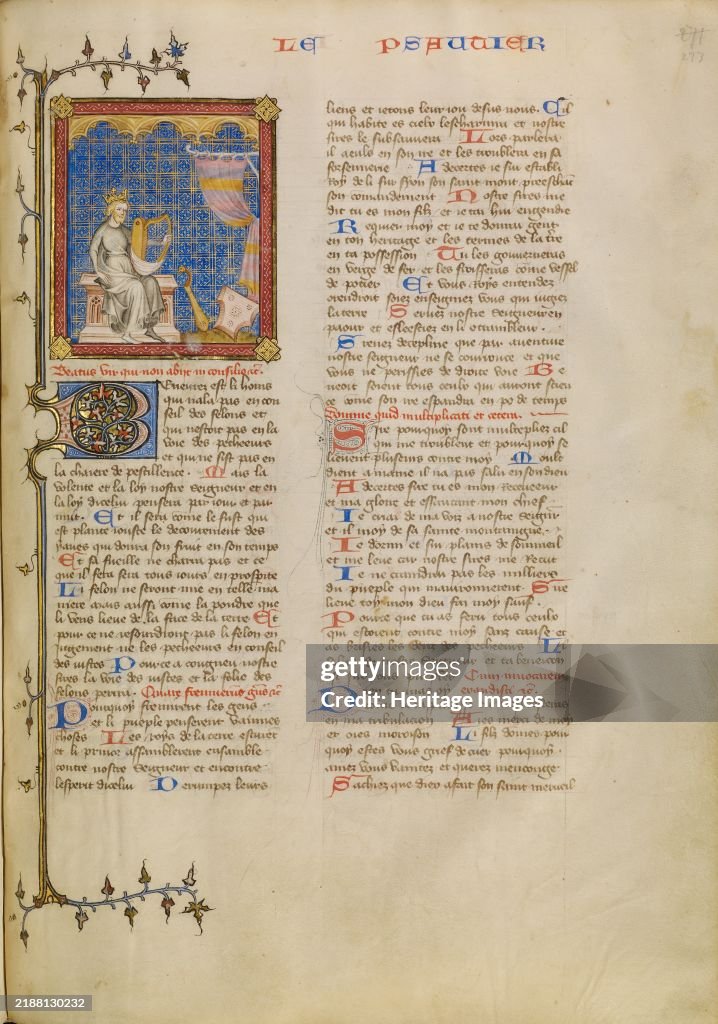 LE PSAUTIER
271
273
Beatus vir qui non abiit in consilio
Bneurez est li homs
qui nala pas en con
seil des felons et
qui nestoit pas en la
voie des pecheeurs
et qui ne sist pas en
la chaiere de pestillence. Mais la
volente et la loy nostre seigneur et en
la loy dicelui pensera par iour et par
nuit. Et il sera come le fust qui
est plante iouste le decourement des
yaues qui donra son fruit en son temps
Et sa fueille ne charra pas et ce
que il fera sera tous iours en prosperite
Li felon ne seront mie en telle ma
niere mais aussi come la poudre que
li vens lieve de la face de la terre Et
pour ce ne resourdront pas li felon en
iugement ne les pecheeurs en conseil
des iustes Pource a congneu nostre
sire la voie des iustes et la folie des
felons perira. Quare fremuerunt gentes
Pourquoy fremirent les gens
et li pueple penserent vainnes
choses Les roys de la terre esturent
et li prince assemblerent ensamble
contre nostre Seigneur et encontre
lesperit dicelui Derumpez leurs
liens et ietons leur iou desus nous. Cil
qui habite es cielx les et nostre
sires le subsannera Lors parlera
il a eulx en son ire et les troublera en sa
forsennerie Adecertes ie sui establi
Roy de li sur syon son saint mont preeschant
son comandement Nostre sires me
dit tu es mon filz et ie tai hui engendre
Requier moy et ie te donrai gent
en ton heritage et les termes de la terre
en ta possession Tu les gouverneras
en verge de fer et les froisseras come vessel
de potier Et vous Roys entendez
orendroit soiez enseigniez vous qui iugiez
la terre Servez nostre Seigneur en
paour et esleesciez en li
Prenez decepline que par aventure
nostre seigneur ne se courrouce et que
vous ne perissies de droite voie Be
neoit soient tous ceulx qui auront
ce come son ire espandra en po de temps
Domine quid multiplicati et cetera.
Sire pourquoy sont multepliez cil
qui me troublent et pourquoy se
lievent plusieurs contre moy Moult
dient a mame il na pas salu en son dieu
Adecertes sire tu es mon Receveur
et ma gloire et essaucant mon chief
Ie criai de ma voix a nostre Seigneur
et il moy de sa sainte montaigne.
Ie dormi et sui plains de sommeil
et me leve car nostre sires me Recut
Ie ne craindrai pas les milliers
du pueple qui mavironnerent. Sire
lieve toy mon dieu fai moy sauf.
Pource que tu as feru tous ceulx
qui estoient contre moy sanz cause et
as brisies les dens des pecheeurs Li
et ta beneicon
Cum invocarem
exaudisti
en ma tribulacion Aies merci de moy
et oies moroison Li filz domes pour
quoy estes vous grief de cuer pourquoy
amez vous vanitez et querez menconge
Sachiez que dieu a fait son saint merveil
gettyimages®
Credit: Heritage Images
2188130232